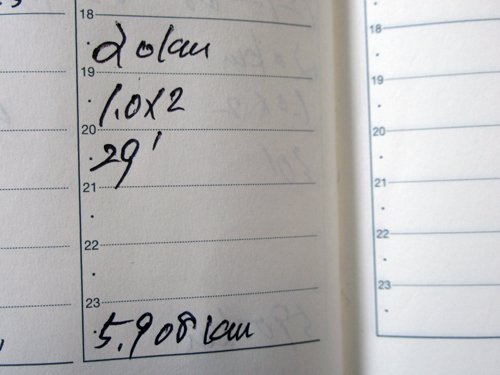 18
20km
19
1.0x2
20
29'
21
22
23
5.908km
18
19
20
21
22
23